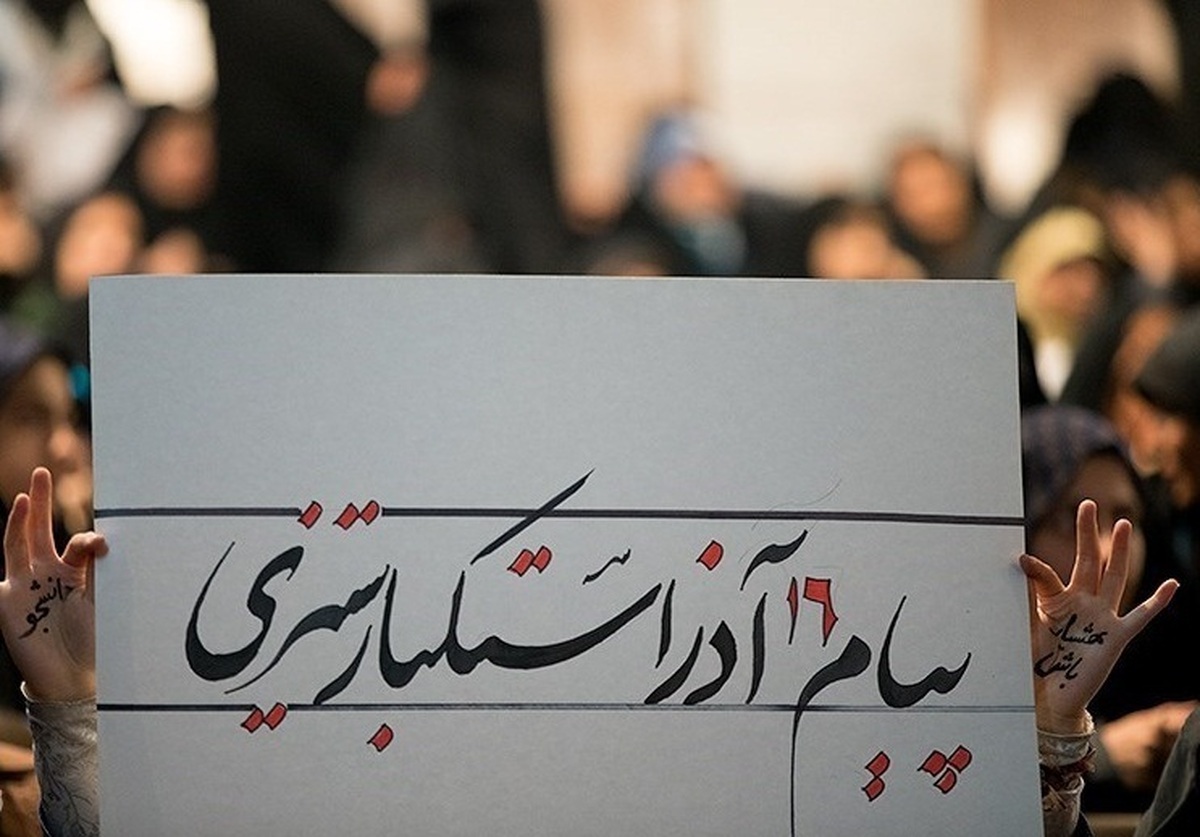 پیام ۱۶ آذر استکبار ستیزی
دانشجو
هشیار
باش